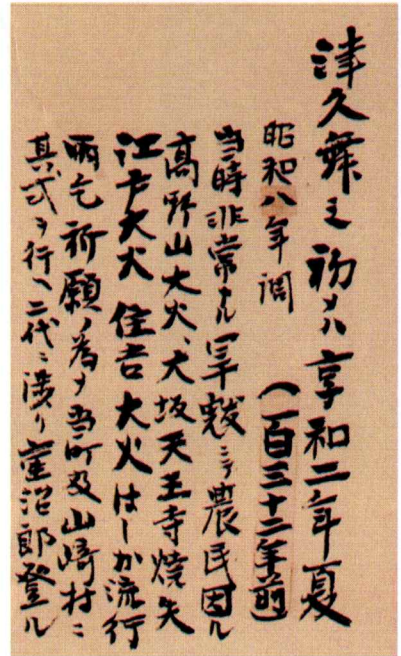 津久舞之初メハ享和二年夏
昭和八年調 （百三十二年前）
当時非常ナル旱魃ニテ農民困ル
高野山大火、大坂天王寺焼失
江戸大火 住吉大火 はしか流行
雨乞祈願ノ為メ当町及山崎村ニ
其式ヲ行ヘ二代ニ渡リ重治郎登ル